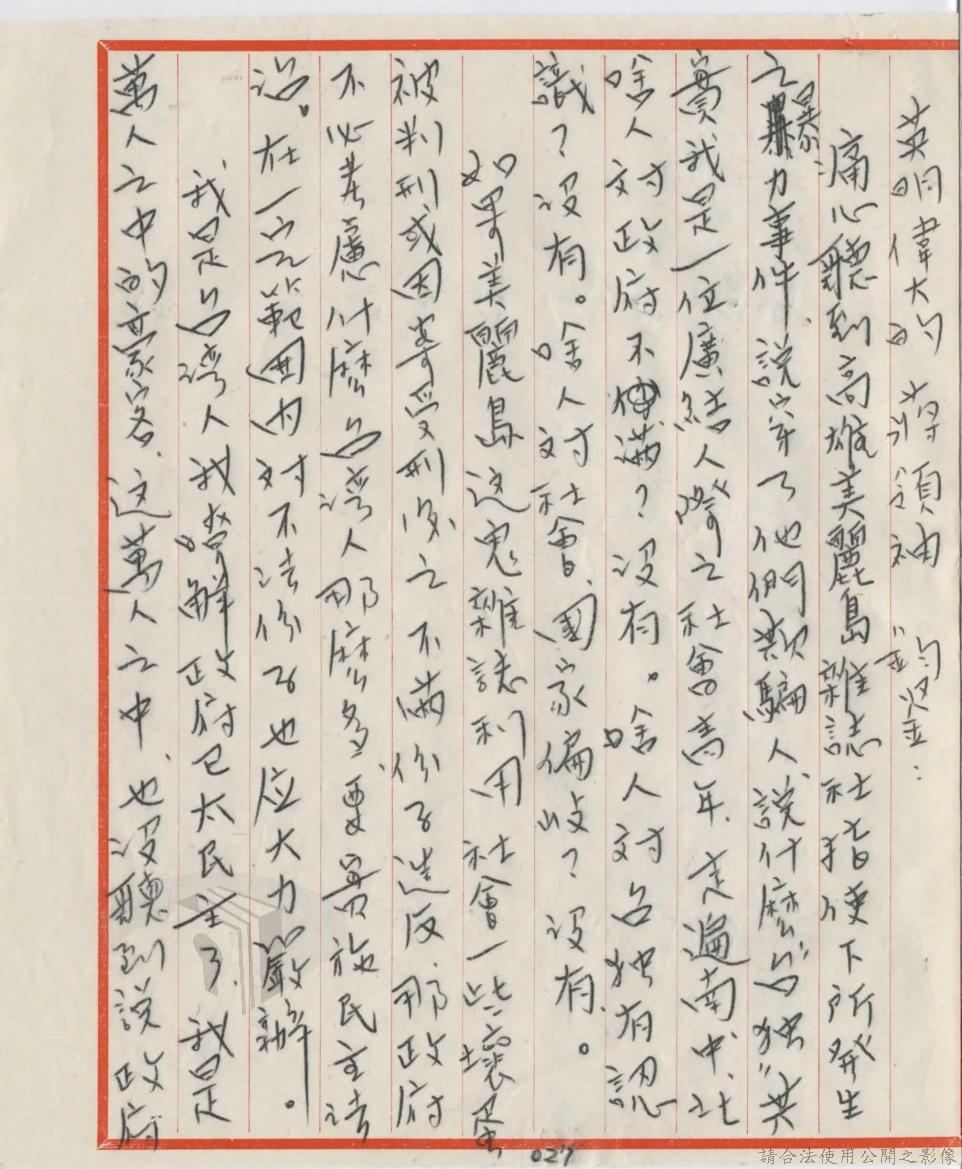 英明偉大的蔣領袖 鈞鑒：
痛心聽到高雄美麗島雜誌社指使下所発生
之暴力事件、說穿了他們欺騙人、說什麼"台独"其
實我是一位廣結人際之社會青年、走遍南、中、北
啥人対政府不滿？没有。啥人対台独有認
識？没有。啥人対社會、國家偏歧？没有。
如果美麗島这鬼雜誌利用社會一些壞蛋
被判刑或因案受刑後之不滿份子造反、那政府
不必考慮什麼台湾人那麼多、要貫施民主法
治。在一定範囲内対不法份子也应大力嚴辦。
我是台湾人我瞭解政府已太民主了、我是
萬人之中的家客、这萬人之中、也没聽到説政府
027
請合法使用公開之影像